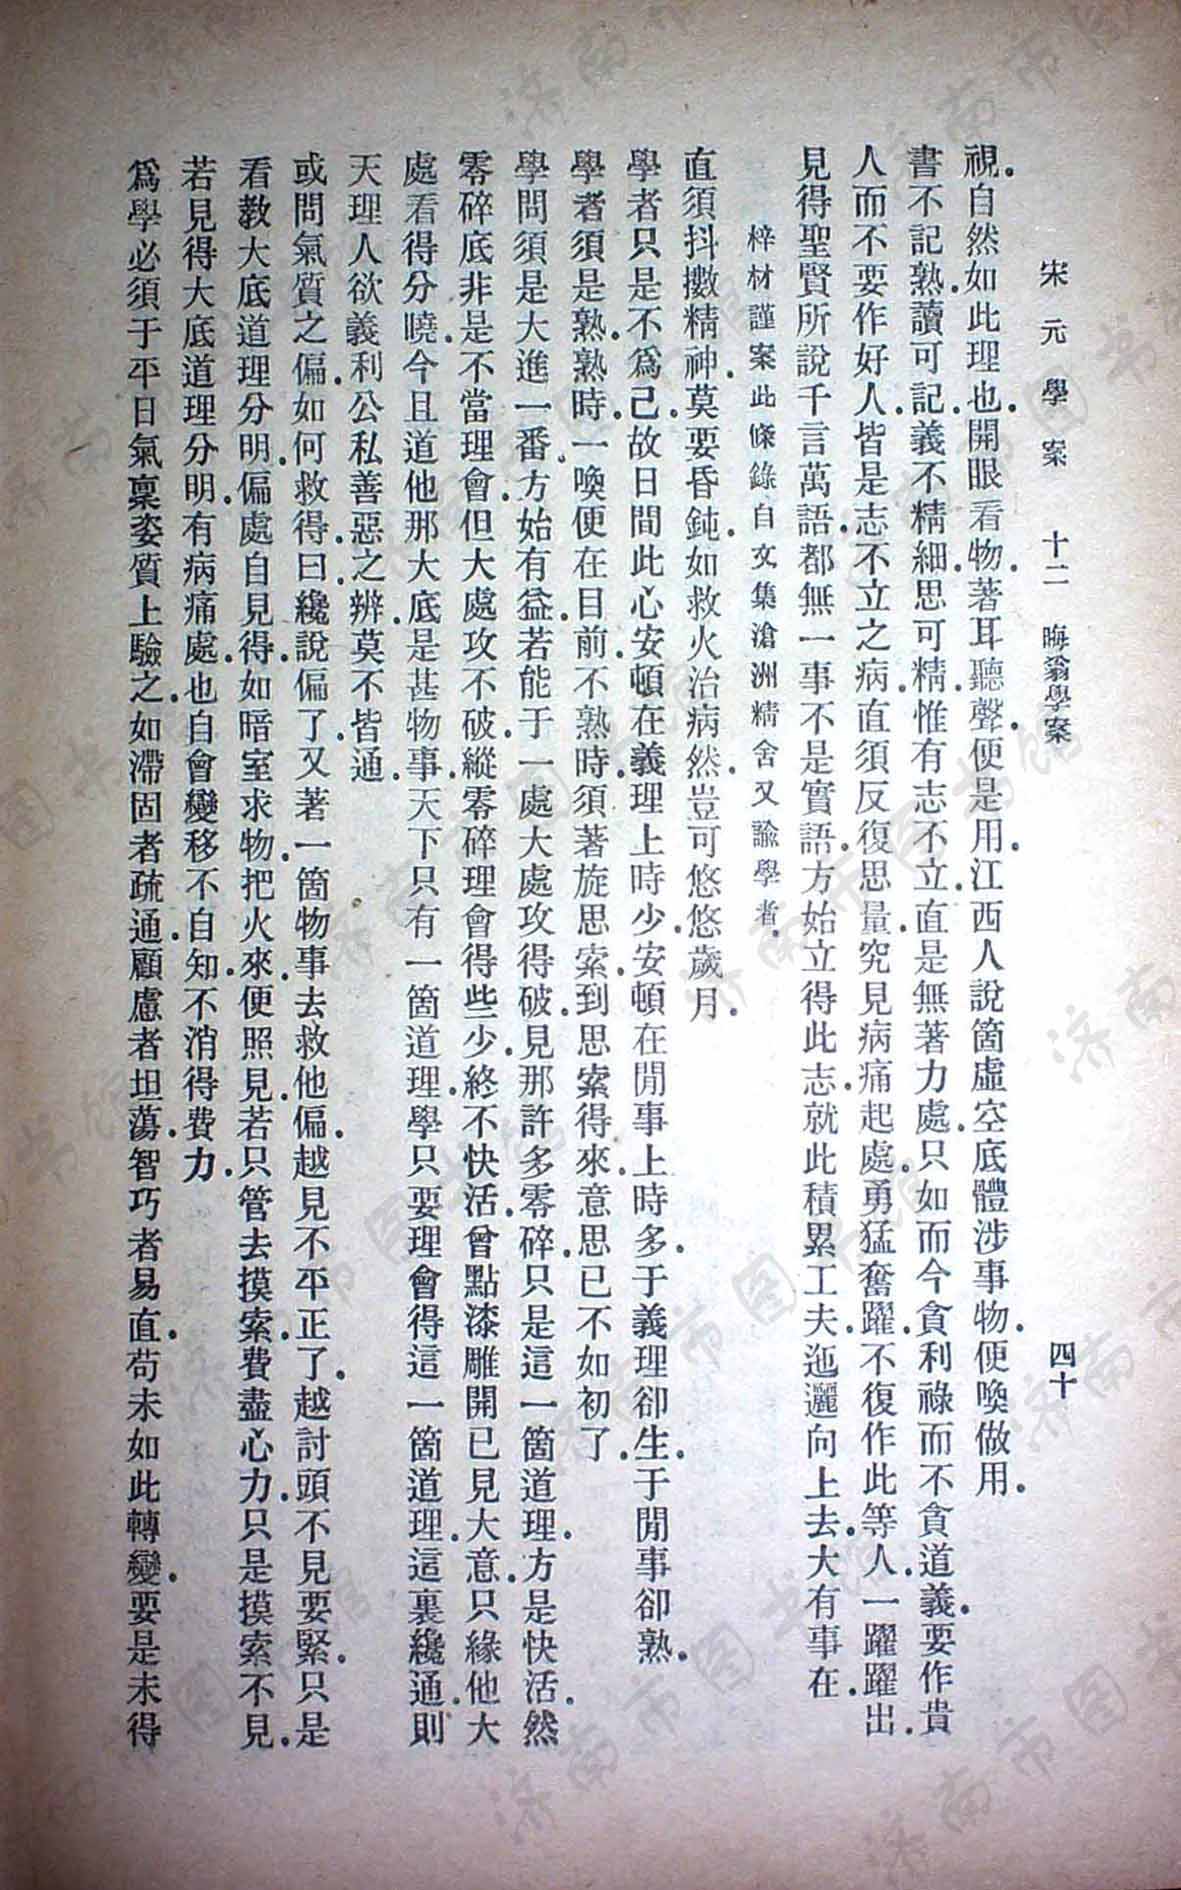 宋元學案 十二 晦翁學案 四十
視。自然如此理也。開眼看物。著耳聽聲。便是用。江西人說箇虛空底體。涉事物。便喚做用。
書不記。熟讀可記。義不精。細思可精。惟有志不立。直是無著力處。只如而今貪利祿而不貪道義。要作貴
人而不要作好人。皆是志不立之病。直須反復思量。究見病痛起處。勇猛奮躍。不復作此等人。一躍躍出。
見得聖賢所說千言萬語。都無一事不是實語。方始立得此志。就此積累工夫。迤邐向上去。大有事在。
梓材謹案此條錄自文集滄洲精舍又諭學者。
直須抖擻精神。莫要昏鈍。如救火治病然。豈可悠悠歲月。
學者只是不爲己。故日間此心安頓在義理上時少。安頓在閒事上時多。于義理卻生。于閒事卻熟。
學者須是熟。熟時一喚便在目前。不熟時。須著旋思索。到思索得來。意思已不如初了。
學問須是大進一番。方始有益。若能于一處大處攻得破。見那許多零碎。只是這一箇道理。方是快活。然
零碎底非是不當理會。但大處攻不破。縱零碎理會得些少。終不快活。曾點漆雕開已見大意。只緣他大
處看得分曉。今且道他那大底是甚物事。天下只有一箇道理。學只要理會得這一箇道理。這裏纔通。則
天理人欲義利公私善惡之辨。莫不皆通
或問氣質之偏。如何救得。曰。纔說偏了。又著一箇物事去救他偏。越見不平正了。越討頭不見。要緊。只是
看教大底道理分明。偏處自見得。如暗室求物。把火來便照見。若只管去摸索。費盡心力。只是摸索不見。
若見得大底道理分明。有病痛處。也自會變移不自知。不消得費力。
爲學必須于平日氣稟姿質上驗之。如滯固者疏通。顧慮者坦蕩。智巧者易直。苟未如此轉變。要是未得